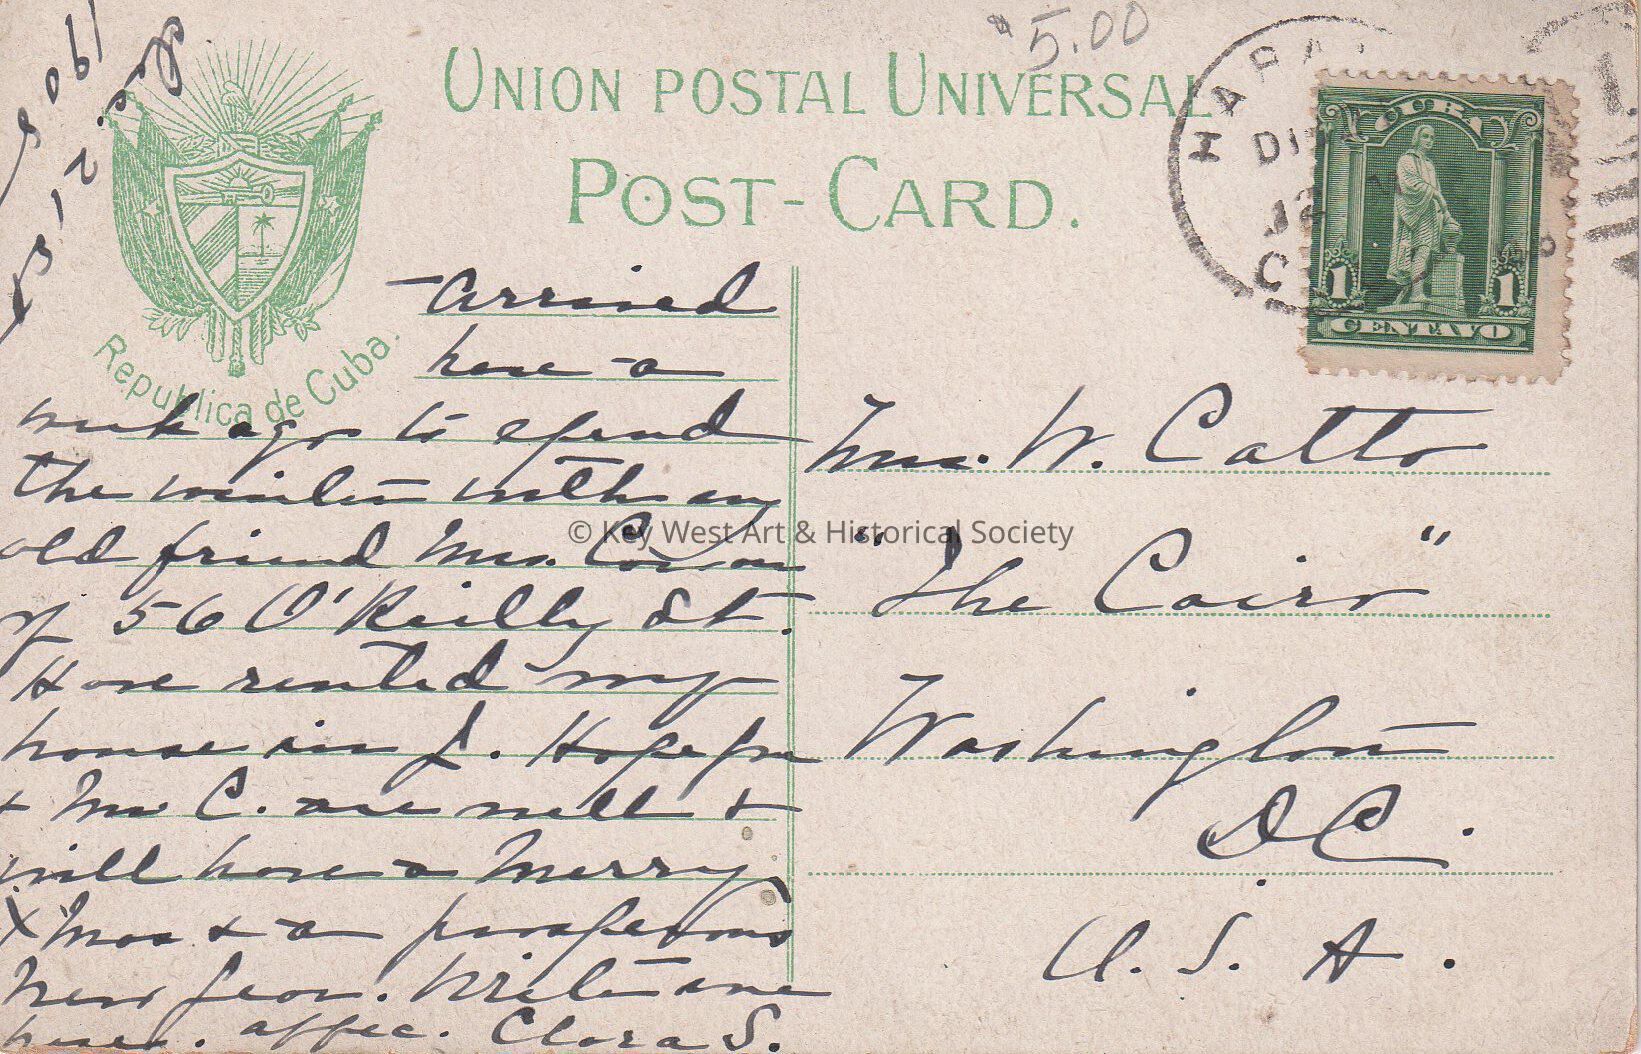 $5.00
UNION POSTAL UNIVERSAL
POST-CARD.
Republica de Cuba.
Dec. 21st
1908
HABA
DI
12
C
CUBA
1 1
CENTAVO
Arrived
here a
week ago to spend
the winter with my
old friend Mrs.
of 56 O'Reilly St.
Have rented my
house in J. Hope you
& Mr C. are well &
will have a Merry
Xmas & a prosperous
New Year. Write me
here. affec. Clara S.
Mrs. W. Catto
"The Cairo"
Washington
D.C.
U. S. A.
© Key West Art & Historical Society